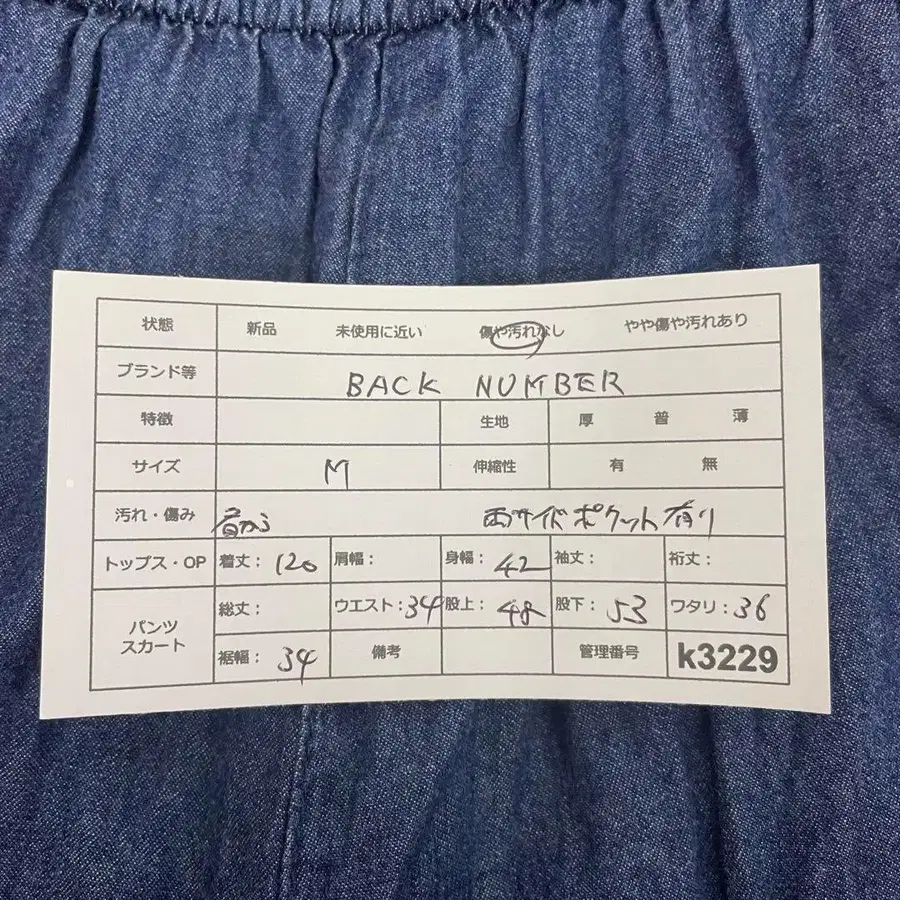 状態 新品 未使用に近い 傷や汚れなし やや傷や汚れあり
ブランド等 BACK NUMBER
特徴 生地 厚 普 薄
サイズ M 伸縮性 有 無
汚れ・傷み 肩から 両サイドポケット有り
トップス・OP 着丈: 120 肩幅: 身幅: 42 袖丈: 裄丈:
パンツ スカート 総丈: ウエスト: 34 股上: 48 股下: 53 ワタリ: 36
裾幅: 34 備考 管理番号 k3229